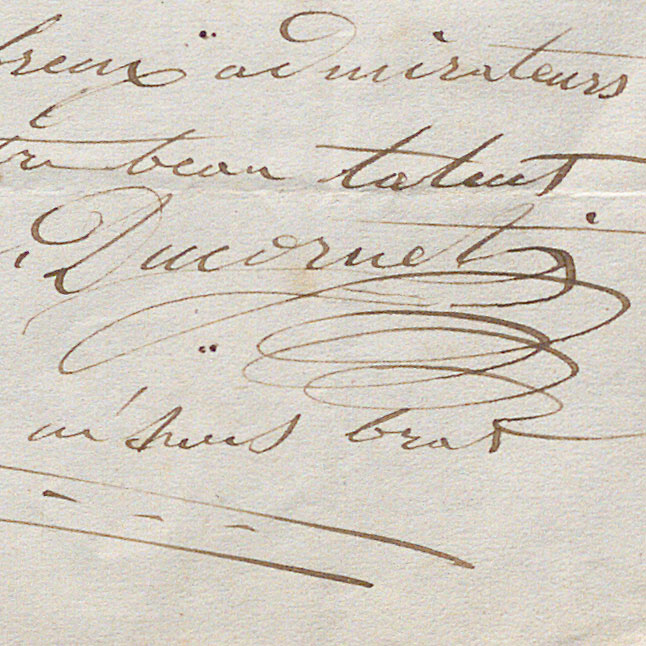 breux admirateurs
tre beau talent
Ducornet
né sans bras